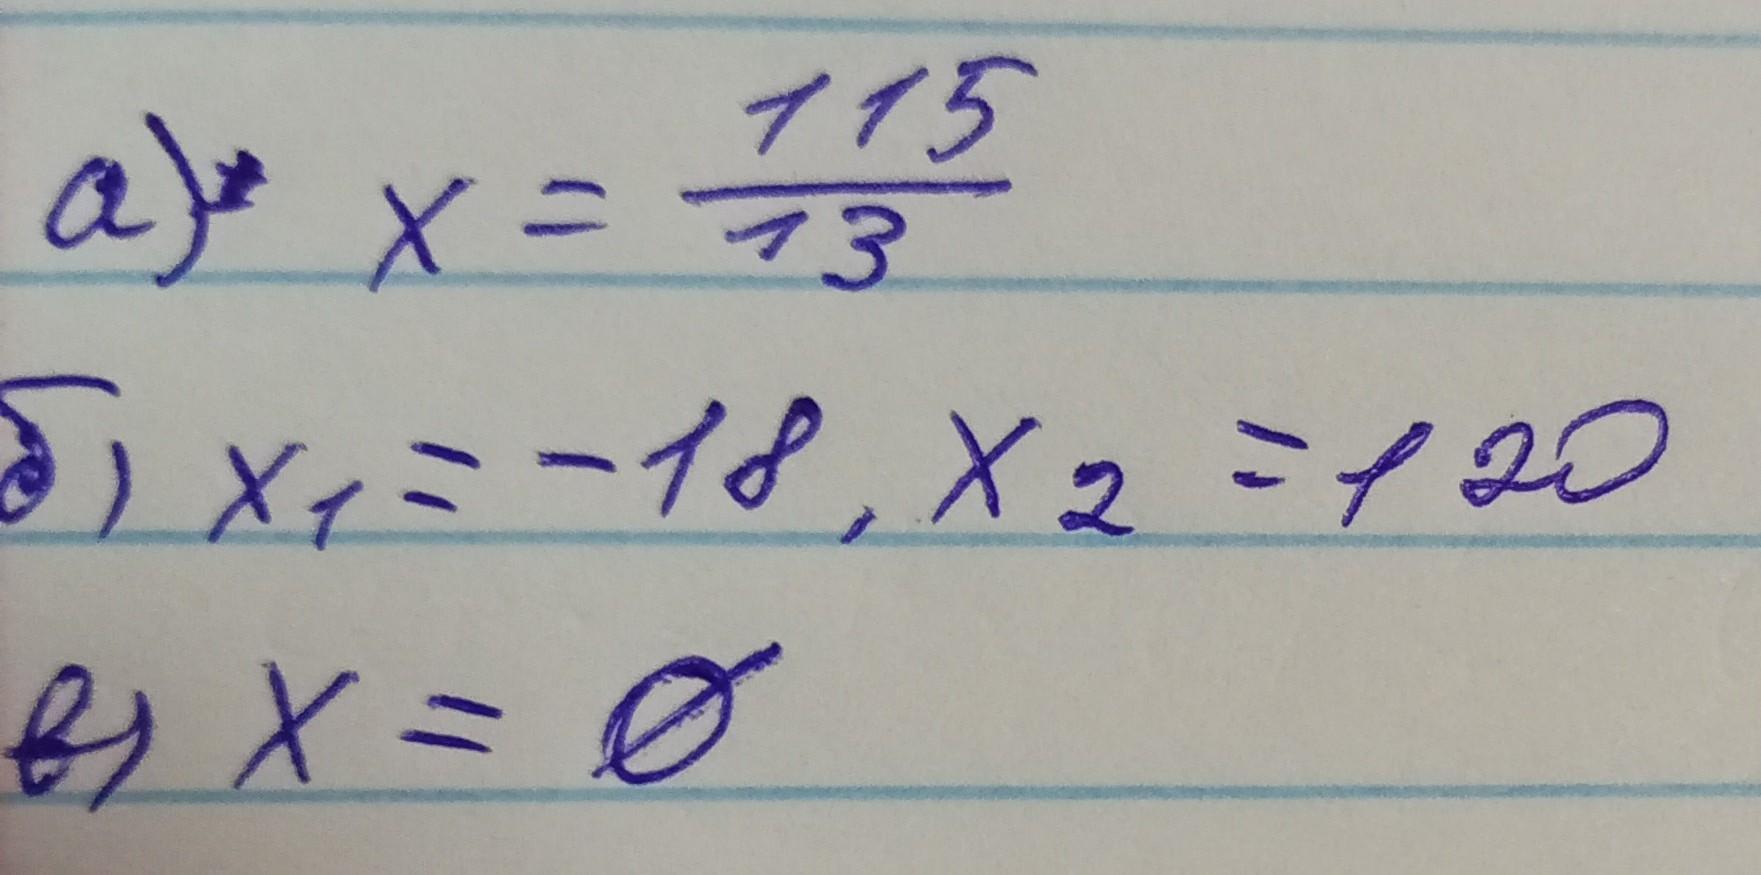 а) x = 115/13
б) x₁ = -18, x₂ = 120
в) x = ∅